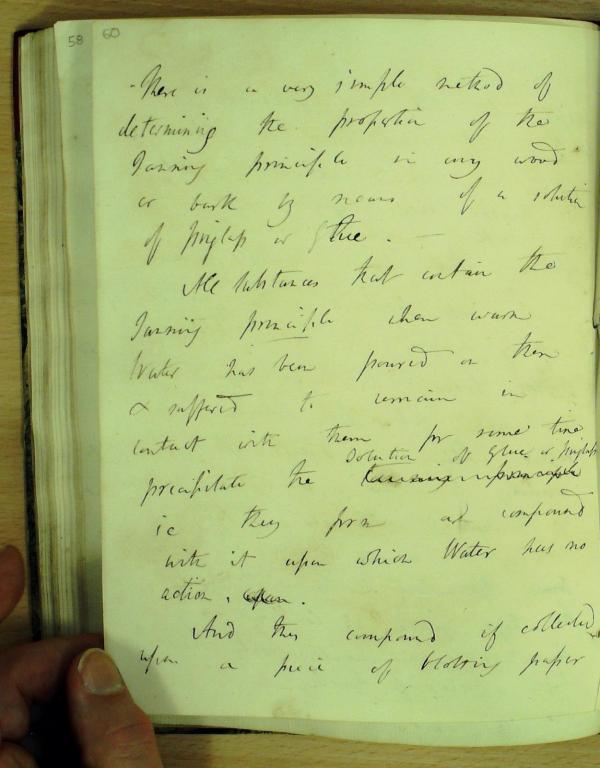 58 60
- There is a very simple method of
determining the proportion of the
Tanning principle in any wood
or bark by means of a solution
of Isinglass or Glue. —
All substances that contain the
Tanning principle when warm
Water has been poured on them
& suffered to remain in
contact with them for some time
solution of Glue or Isinglass
precipitate the tanning principle
ie they form a compound
with it upon which Water has no
action. upon.
And this compound if collected
upon a piece of blotting paper